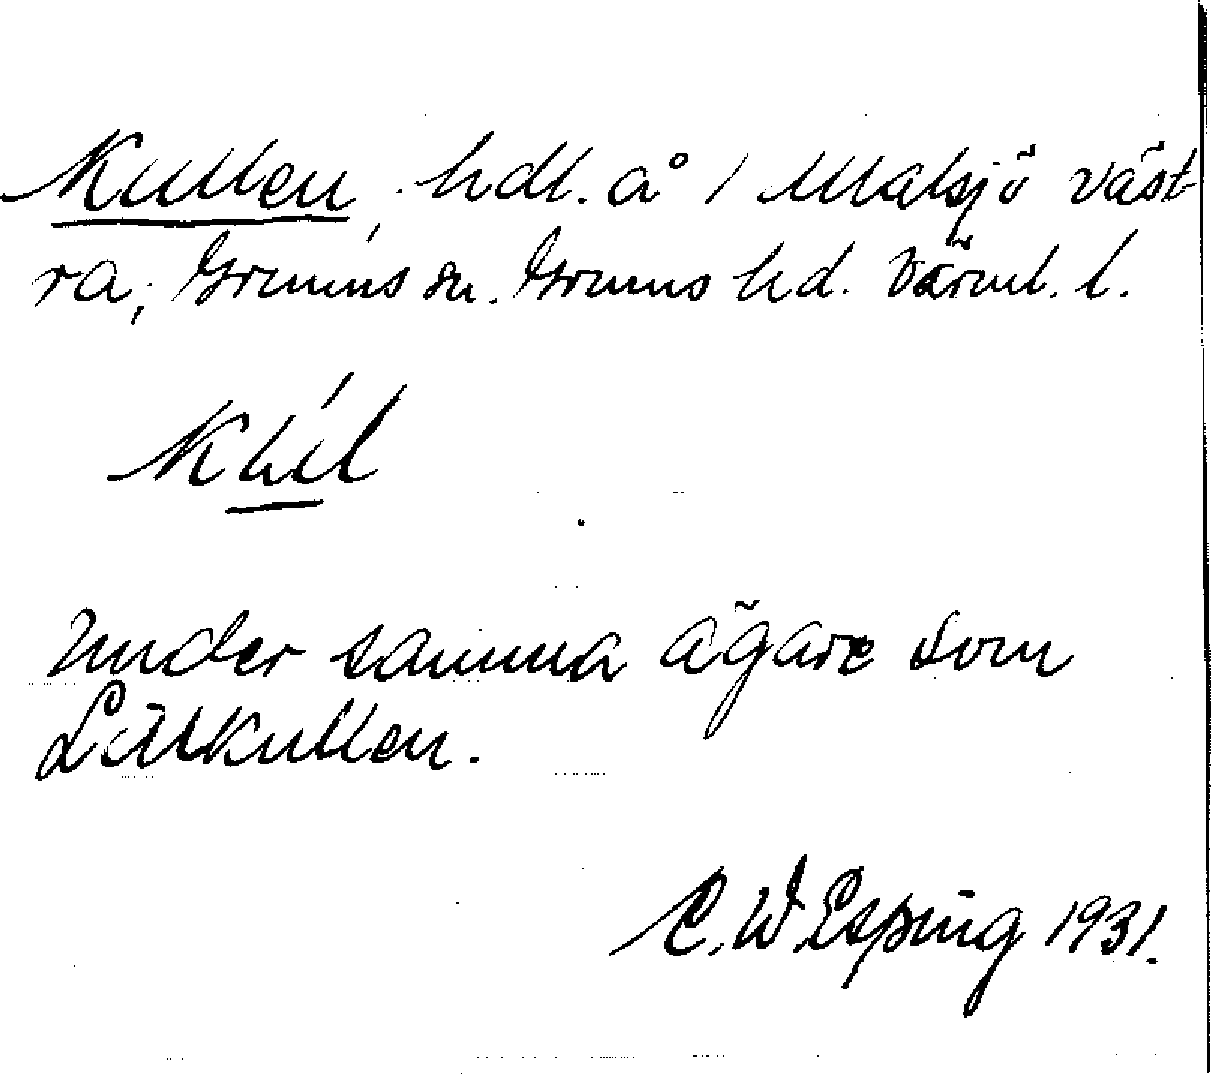 Kullen, hdl. å 1 Malsjö väst-
ra, Grums sn. Grums hd. Värml. l.
Under samma ägare som
Lillkullen.
C. W. Esping 1931.